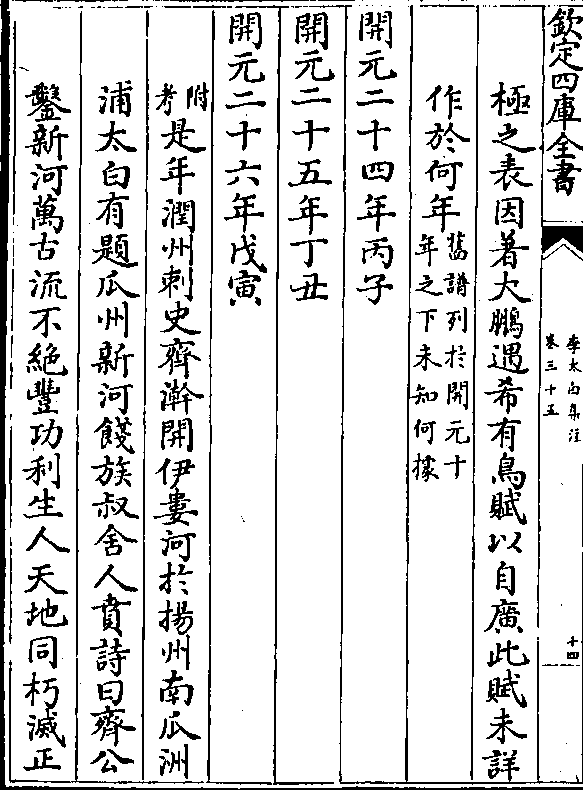 欽定四庫全書
李太白集注
卷三十五
十四
極之表因著大鵬遇希有鳥賦以自廣此賦未詳
作於何年舊譜列於開元十
年之下未知何據
開元二十四年丙子
開元二十五年丁丑
開元二十六年戊寅
附考是年潤州刺史齊澣開伊婁河於揚州南瓜洲
浦太白有題瓜州新河餞族叔舍人賁詩曰齊公
鑿新河萬古流不絕豐功利生人天地同朽滅正